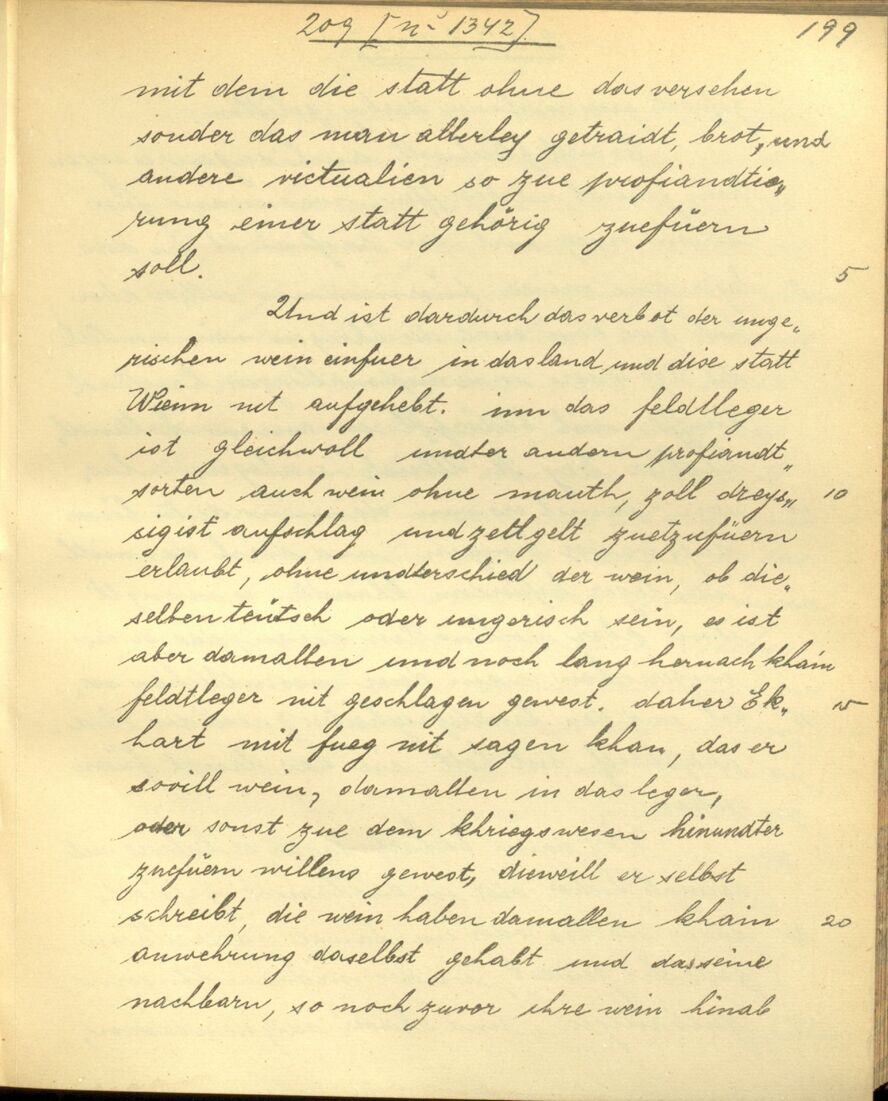 209 [nº 1342]. 199
mit dem die statt ohne das versehen
sonder das man allerley getraidt, brot, und
andere victualien so zue profiandtie„
rung einer statt gehörig zuefüern
soll. 5
Und ist dardurch das verbot der unge„
rischen wein einfuer in das land und dise statt
Wienn nit aufgehebt. inn das feldtleger
ist gleichwoll undter andern profiandt„
sorten auch wein ohne mauth, zoll dreys„ 10
sigist aufschlag und zettgelt zuetzufüern
erlaubt, ohne undterschied der wein, ob die„
selben teütsch oder ungerisch sein, es ist
aber damallen und noch lang hernach khain
feldtleger nit geschlagen gewest. daher Ek„ 15
hart mit fueg nit sagen khan, das er
sovill wein, damallen in das leger,
oder sonst zue dem khriegswesen hinundter
zuefüern willens gewest, dieweill er selbst
schreibt, die wein haben damallen khain 20
anwehrung daselbst gehabt und das seine
nachbarn, so noch zuvor ihre wein hinab